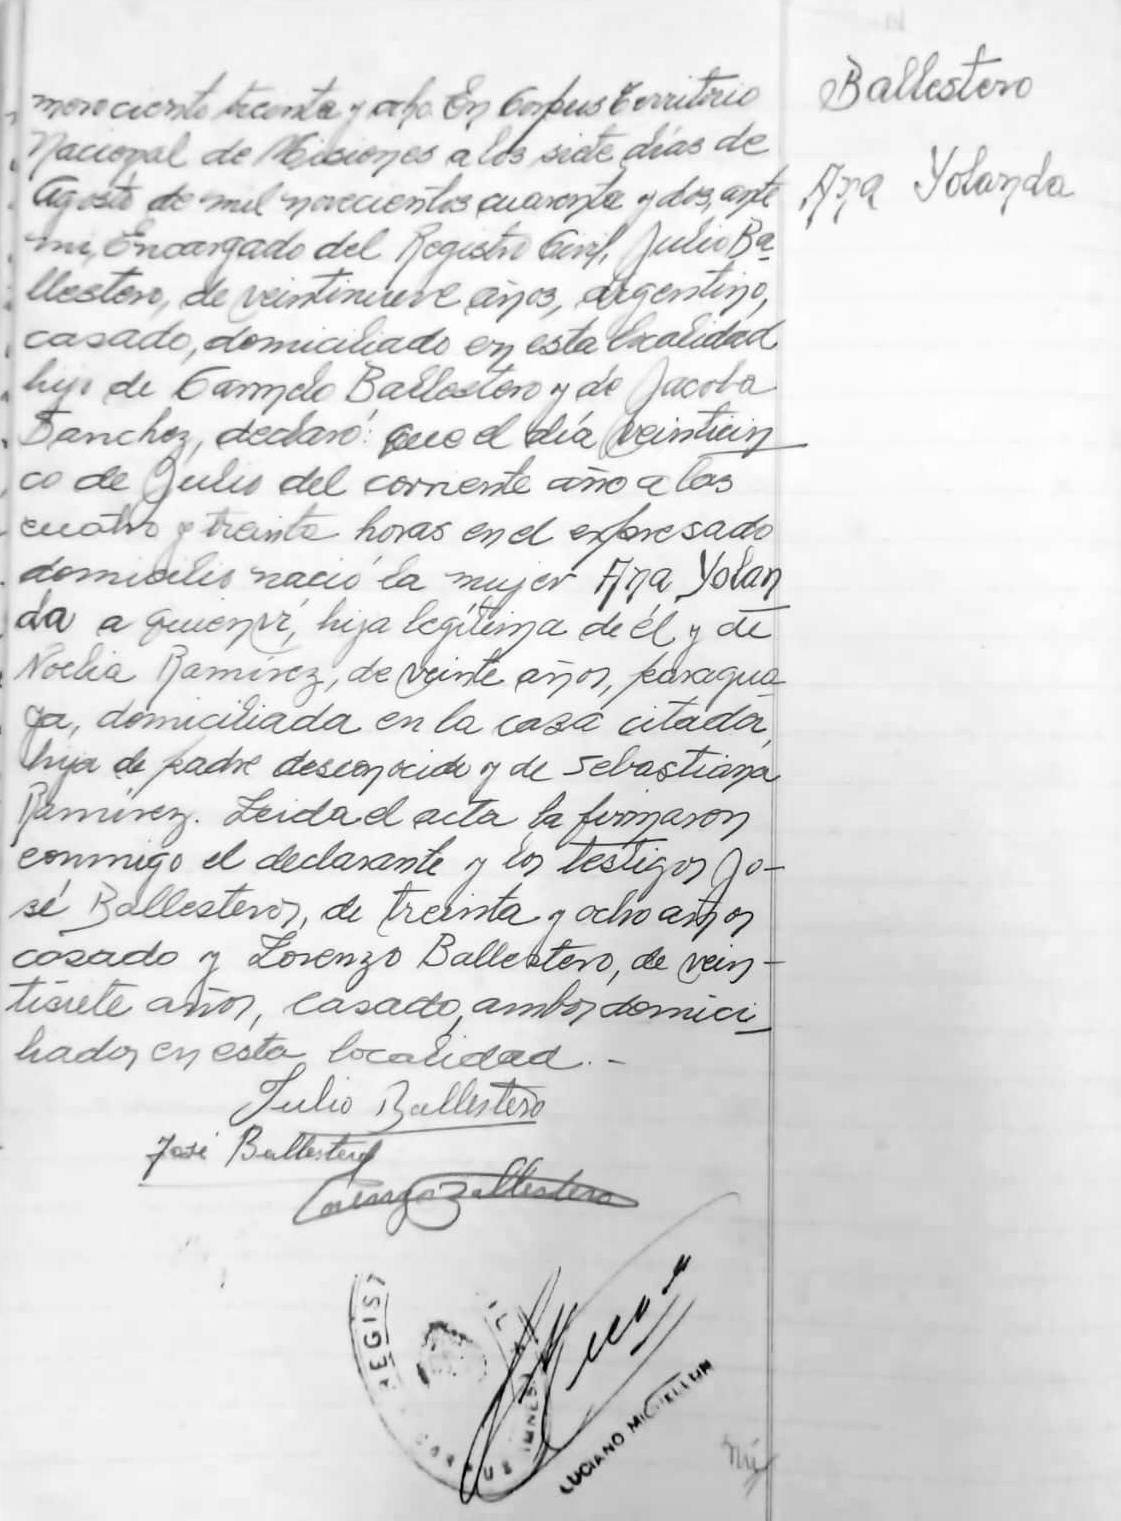 novecientos treinta y ocho. En Corpus Territorio
Nacional de Misiones a los siete días de
Agosto de mil novecientos cuarenta y dos, ante
mi, Encargado del Registro Civil, Julio Ba
llestero, de veintinueve años, argentino,
casado, domiciliado en esta localidad
hijo de Carmelo Ballestero y de Jacoba
Sanchez, declaró: que el día veinticin
co de Julio del corriente año a las
cuatro y treinta horas en el expresado
domicilio nació la mujer Ana Yolan
da a quien ví, hija legítima de él y de
Noelia Ramírez, de veinte años, paragua
ya, domiciliada en la casa citada,
hija de padre desconocido y de Sebastiana
Ramírez. Leida el acta la firmaron
conmigo el declarante y los testigos Jo-
sé Ballestero, de treinta y ocho años
casado y Lorenzo Ballestero, de vein-
tisiete años, casado, ambos domici
liados en esta localidad.-
Julio Ballestero
José Ballestero
Lorenzo Ballestero
REGIST
CORPUS
LUCIANO
Ballestero
Ana Yolanda